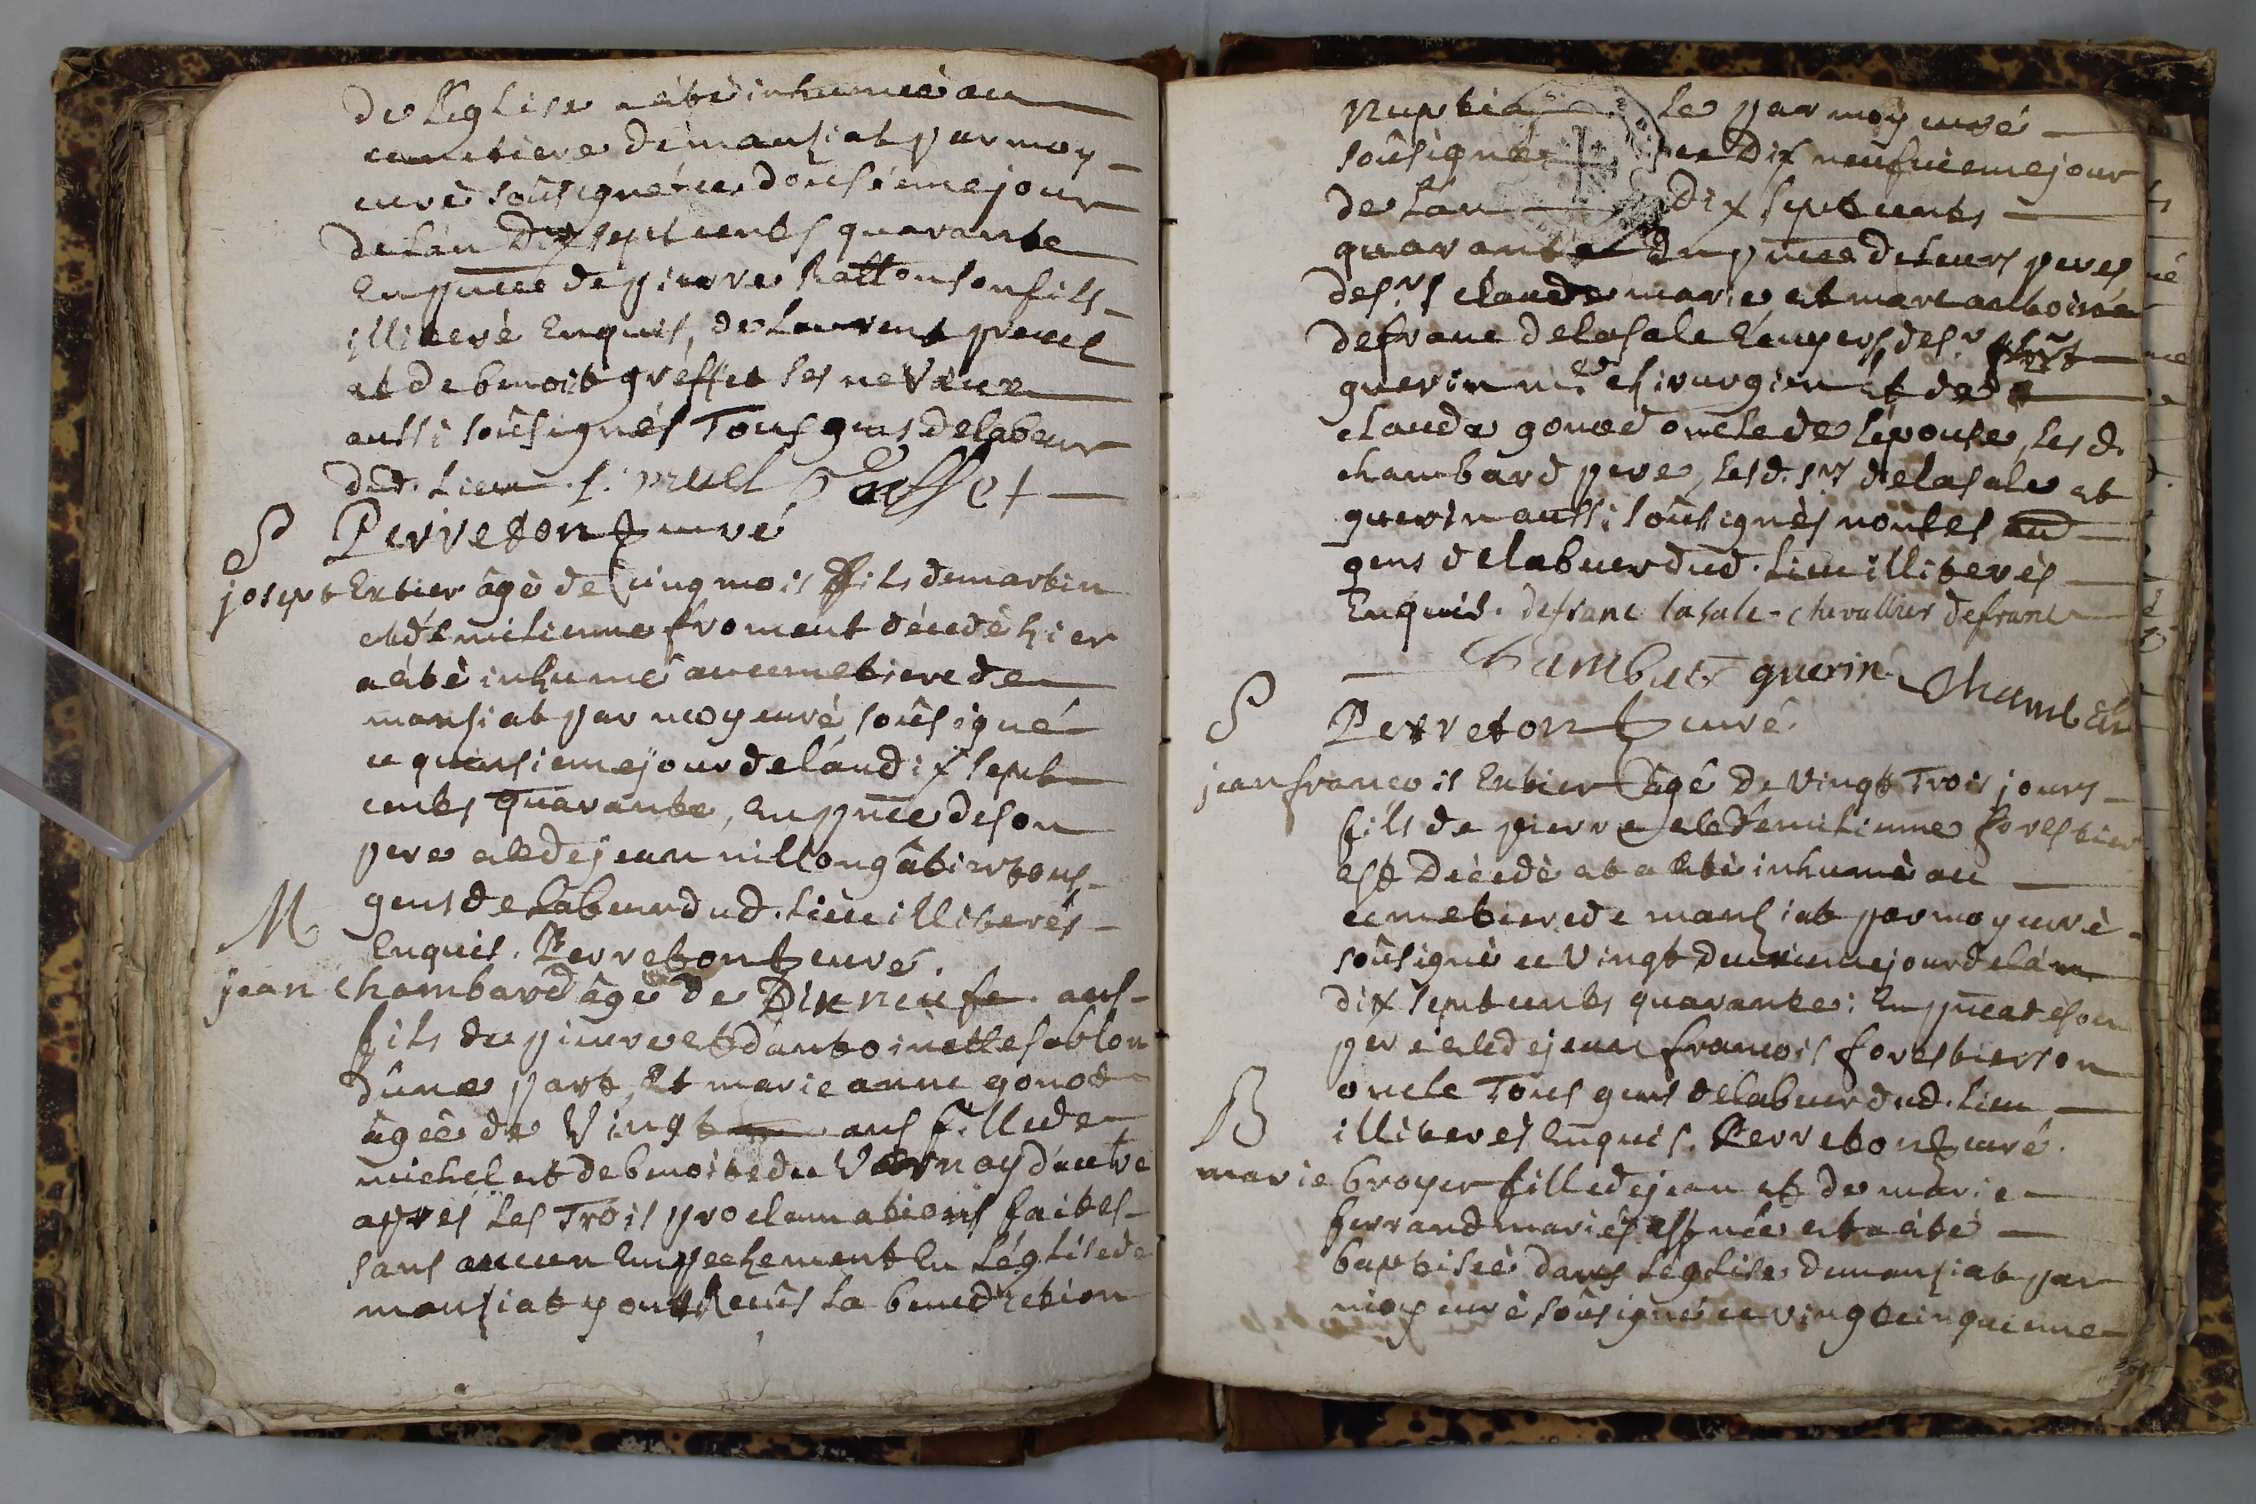 de l'Eglise a êtè inhumèe au
cemetiere de mansiat par moy
curè soûsigné ce dousiéme jour
de l'an Dix sept cents quarante
En pnce de pierre hatton son fils
illiterè Enquis, de Laurent pruel
et de benoit gréffet ses neveux
aussi soûsignés Tous gens de labeur
dud. Lieu. L. pruel Greffet
S Perreton curé
josept Entier âgè de Cinq mois fils de martin
et d'Emilienne froment décedè hier
a étè inhumé au cemetiere de
mansiat par moy curè soûsigné
ce quinsiemejour de l'an dix sept
cents quarante, En pnce de son
pere et de jean nillon gâtier tous
gens de labeur dud. Lieu illiterés
Enquis. Perreton curé.
M
jean Chambard âgè de Dix neufe ans
fils de pierre et d'antoinette sablon
d'une part, Et marie anne gonod
âgèe de Vingt ans fille de
michel et de benoite du Vernay d'autre
aprés Les Trois proclamations faites
sans aucun Empechement En L'église de
mansiat y ont Recûs La benediction
Nuptia le par moy curé
soûsigné ce Dix neufuiemejour
de L'an Dix sept cents
quarante En pnce de Leurs peres
des.rs claude marie et marc antoine
defranc delasale Ecuyers, de s.r
guerin m.e chirurgien et de
claude gonod oncle de l'épouse, Les d.
chambard pere, Les d. s.rs delasale et
guerin aussi soûsignès non les
gens de labeur dud. Lieu illiterès
Enquis. defranc lasale - chevallier defranc
Chambard guerin Chambar
S Perreton curé.
jean francois Entier âgé De Vingt Trois jours
fils de pierre et d'Emilienne forestier
est Décedè et a êtè inhumè au
cemetiere de mansiat par moy curè
soûsignè ce Vingt deuxiemejour de l'an
dix sept cents quarante; En pnce de son
pere et de jean francois forestier son
oncle Tous gens de labeur dud. Lieu
illiterés Enquis. Perreton curé.
B
marie broyer fille de jean et de marie
ferrand mariés est née et a été
baptisèe dans L'eglise de mansiat par
moy curè soûsigné ce vingtcinquieme